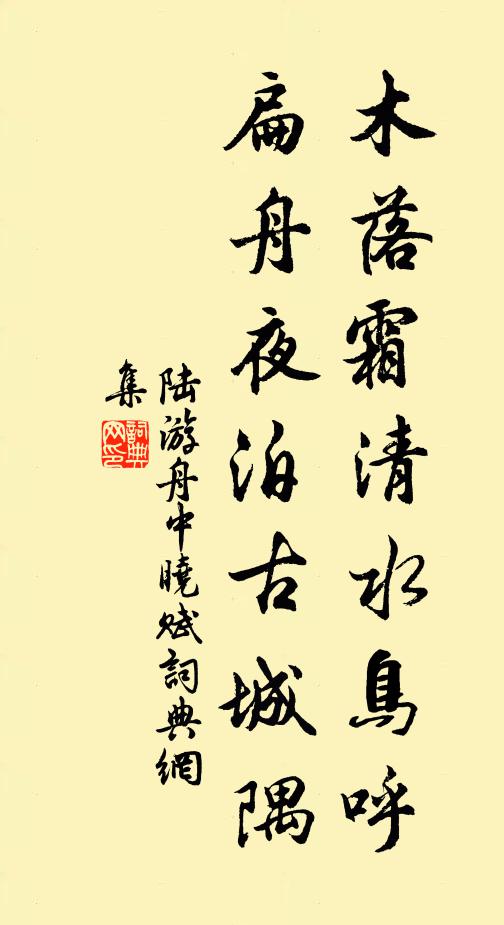 木落霜清水鳥呼
扁舟夜泊古城隅
陆游舟中曉赋詞典網
集
詞典
网印